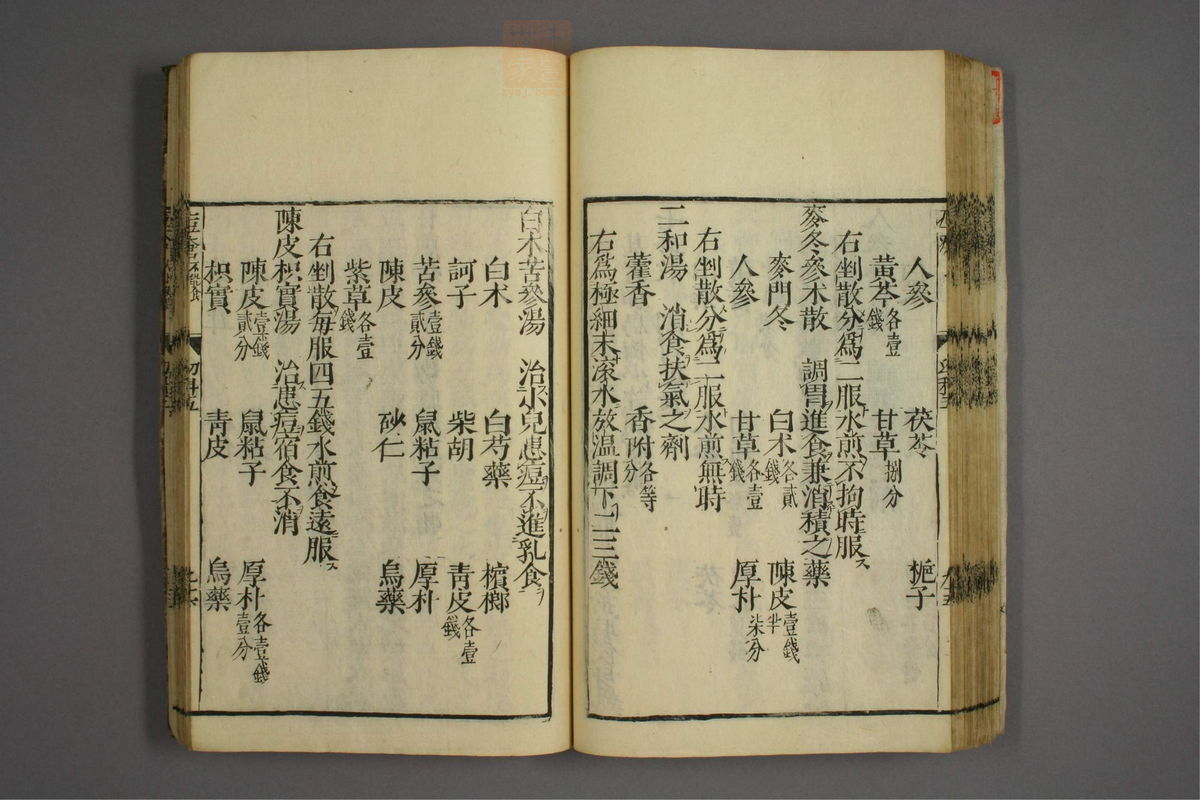 人參　茯苓　梔子
黃芩各壹錢　甘草捌分
右剉散分爲二服水煎不拘時服ス
麥冬參朮散　調胃進食兼消積之藥
麥門冬　白朮各貳錢　陳皮壹錢半
人參　甘草各壹錢　厚朴柒分
右剉散分爲二服水煎無時
二和湯　消食扶氣之劑
藿香　香附各等分
右爲極細末滾水放溫調下二三錢
白朮苦參湯　治小兒患痘不進乳食ヲ
白朮　白芍藥　檳榔
訶子　柴胡　靑皮各壹錢
苦參壹錢貳分　鼠粘子　厚朴
陳皮　砂仁　烏藥
紫草各壹錢
右剉散每服四五錢水煎食遠服ス
陳皮枳實湯　治患痘宿食不消
陳皮壹錢貳分　鼠粘子　厚朴各壹錢壹分
枳實　靑皮　烏藥